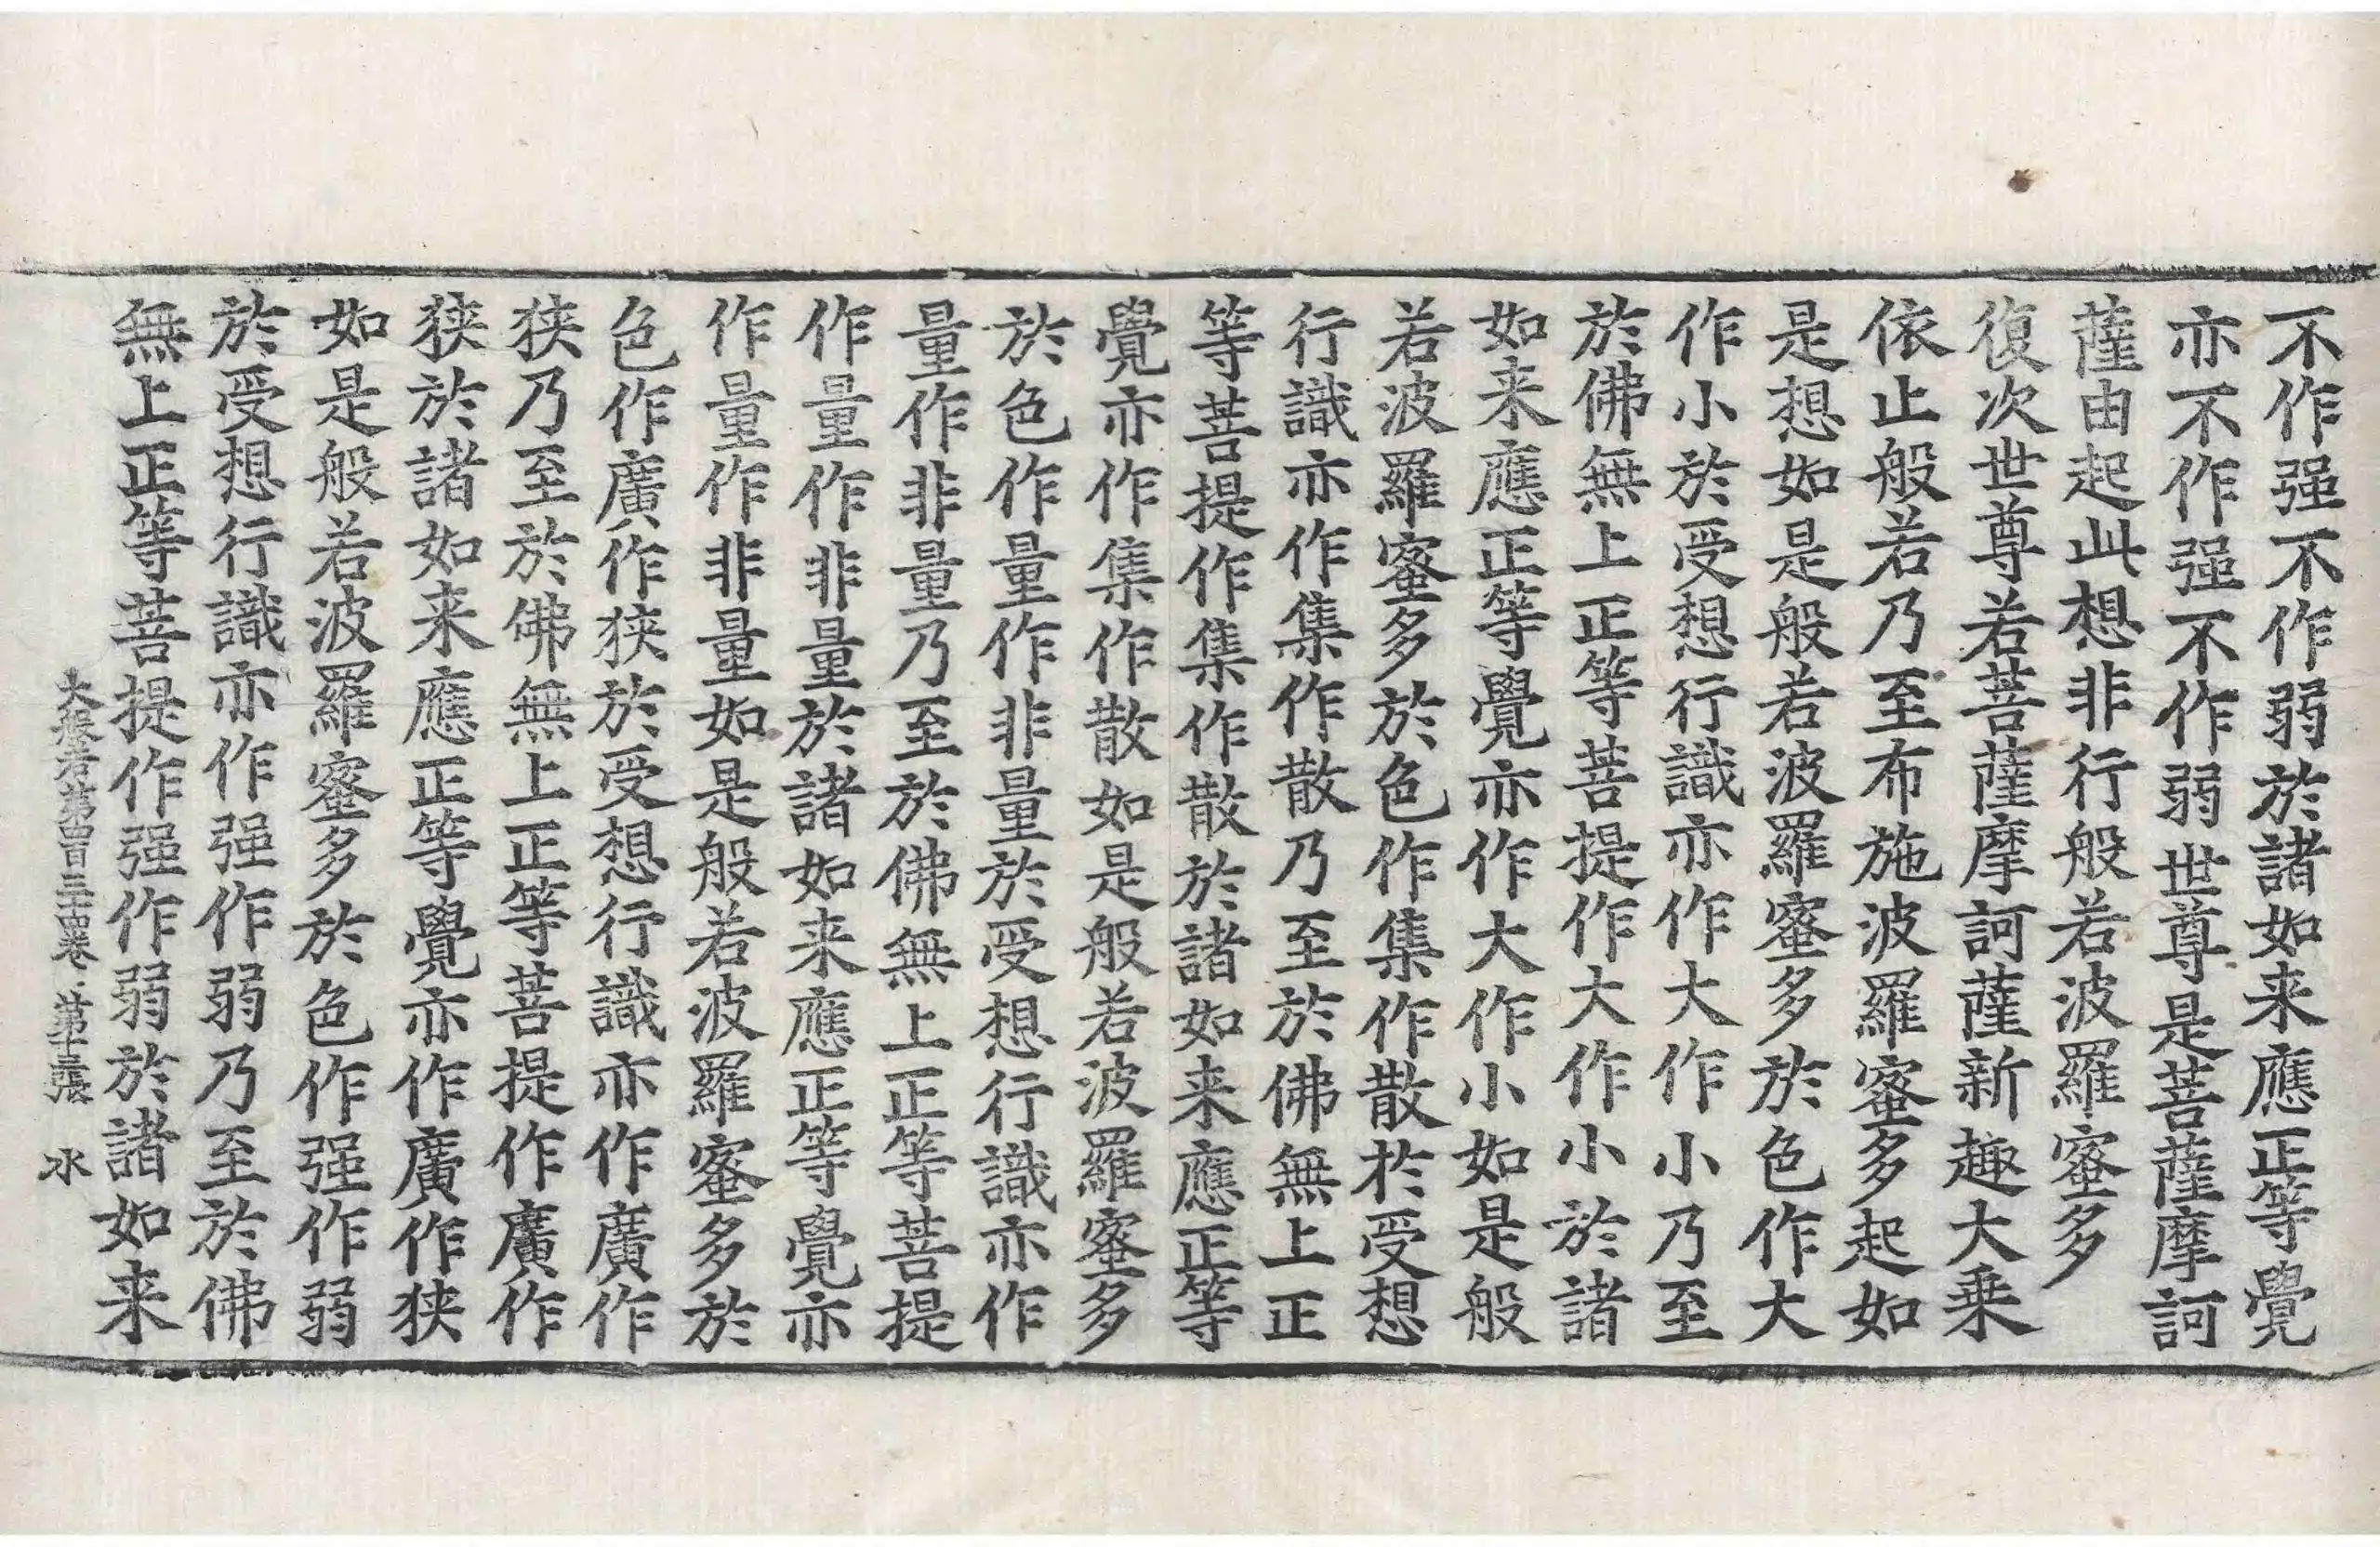 不作强不作弱於諸如来應正等覺
亦不作强不作弱世尊是菩薩摩訶
薩由起此想非行般若波羅蜜多
復次世尊若菩薩摩訶薩新趣大乗
依止般若乃至布施波羅蜜多起如
是想如是般若波羅蜜多於色作大
作小於受想行識亦作大作小乃至
於佛無上正等菩提作大作小於諸
如来應正等覺亦作大作小如是般
若波羅蜜多於色作集作散於受想
行識亦作集作散乃至於佛無上正
等菩提作集作散於諸如来應正等
覺亦作集作散如是般若波羅蜜多
於色作量作非量於受想行識亦作
量作非量乃至於佛無上正等菩提
作量作非量於諸如来應正等覺亦
作量作非量如是般若波羅蜜多於
色作廣作狹於受想行識亦作廣作
狹乃至於佛無上正等菩提作廣作
狹於諸如来應正等覺亦作廣作狹
如是般若波羅蜜多於色作强作弱
於受想行識亦作强作弱乃至於佛
無上正等菩提作强作弱於諸如来
大般若第四百三十四卷 第十三張 水